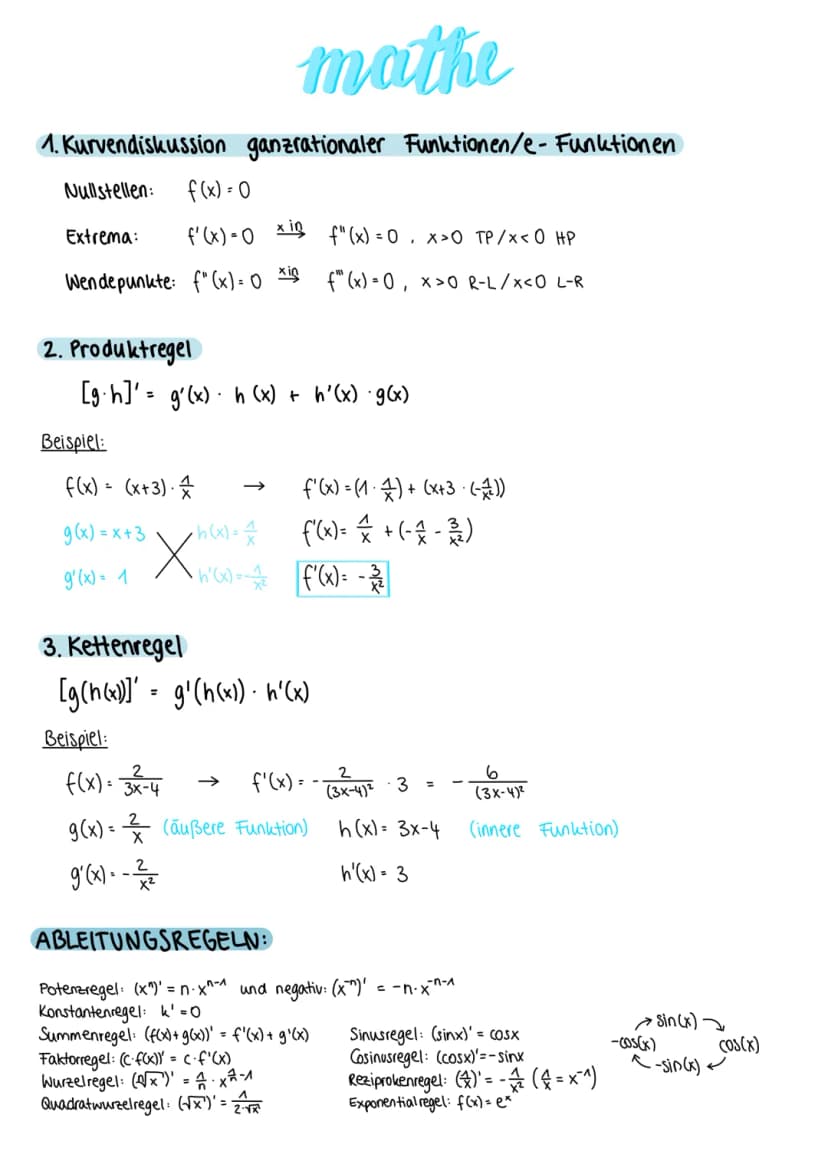 mathe
1. Kurvendiskussion ganzrationaler Funktionen/e-Funktionen
Nullstellen: f(x) = 0
Extrema: f'(x) = 0 x in → f"(x) = 0 , x>0 TP/x<0 HP
Wendepunkte: f"(x) = 0 x in → f'''(x) = 0 , x>0 R-L/x<0 L-R
2. Produktregel
[g·h]' = g'(x) · h(x) + h'(x) · g(x)
Beispiel:
f(x) = (x+3) · 1/x → f'(x) = (1 · 1/x) + (x+3 · (-1/x²))
g(x) = x+3 h(x) = 1/x f'(x) = 1/x + (-1/x - 3/x²)
g'(x) = 1 h'(x) = -1/x² f'(x) = -3/x²
3. Kettenregel
[g(h(x))]' = g'(h(x)) · h'(x)
Beispiel:
f(x) = 2/(3x-4) → f'(x) = - 2/(3x-4)² · 3 = - 6/(3x-4)²
g(x) = 2/x (äußere Funktion) h(x) = 3x-4 (innere Funktion)
g'(x) = -2/x² h'(x) = 3
ABLEITUNGSREGELN:
Potenzregel: (xⁿ)' = n·xⁿ⁻¹ und negativ: (x⁻ⁿ)' = -n·x⁻ⁿ⁻¹
Konstantenregel: k' = 0
Summenregel: (f(x)+g(x))' = f'(x)+g'(x)
Faktorregel: (c·f(x))' = c·f'(x)
Wurzelregel: (ⁿ√x)' = 1/n · x^(1/n-1)
Quadratwurzelregel: (√x)' = 1/(2·√x)
Sinusregel: (sinx)' = cosx
Cosinusregel: (cosx)' = -sinx
Reziprokenregel: (1/x)' = -1/x² (1/x = x⁻¹)
Exponentialregel: f(x) = eˣ
sin(x)
-cos(x) cos(x)
-sin(x)